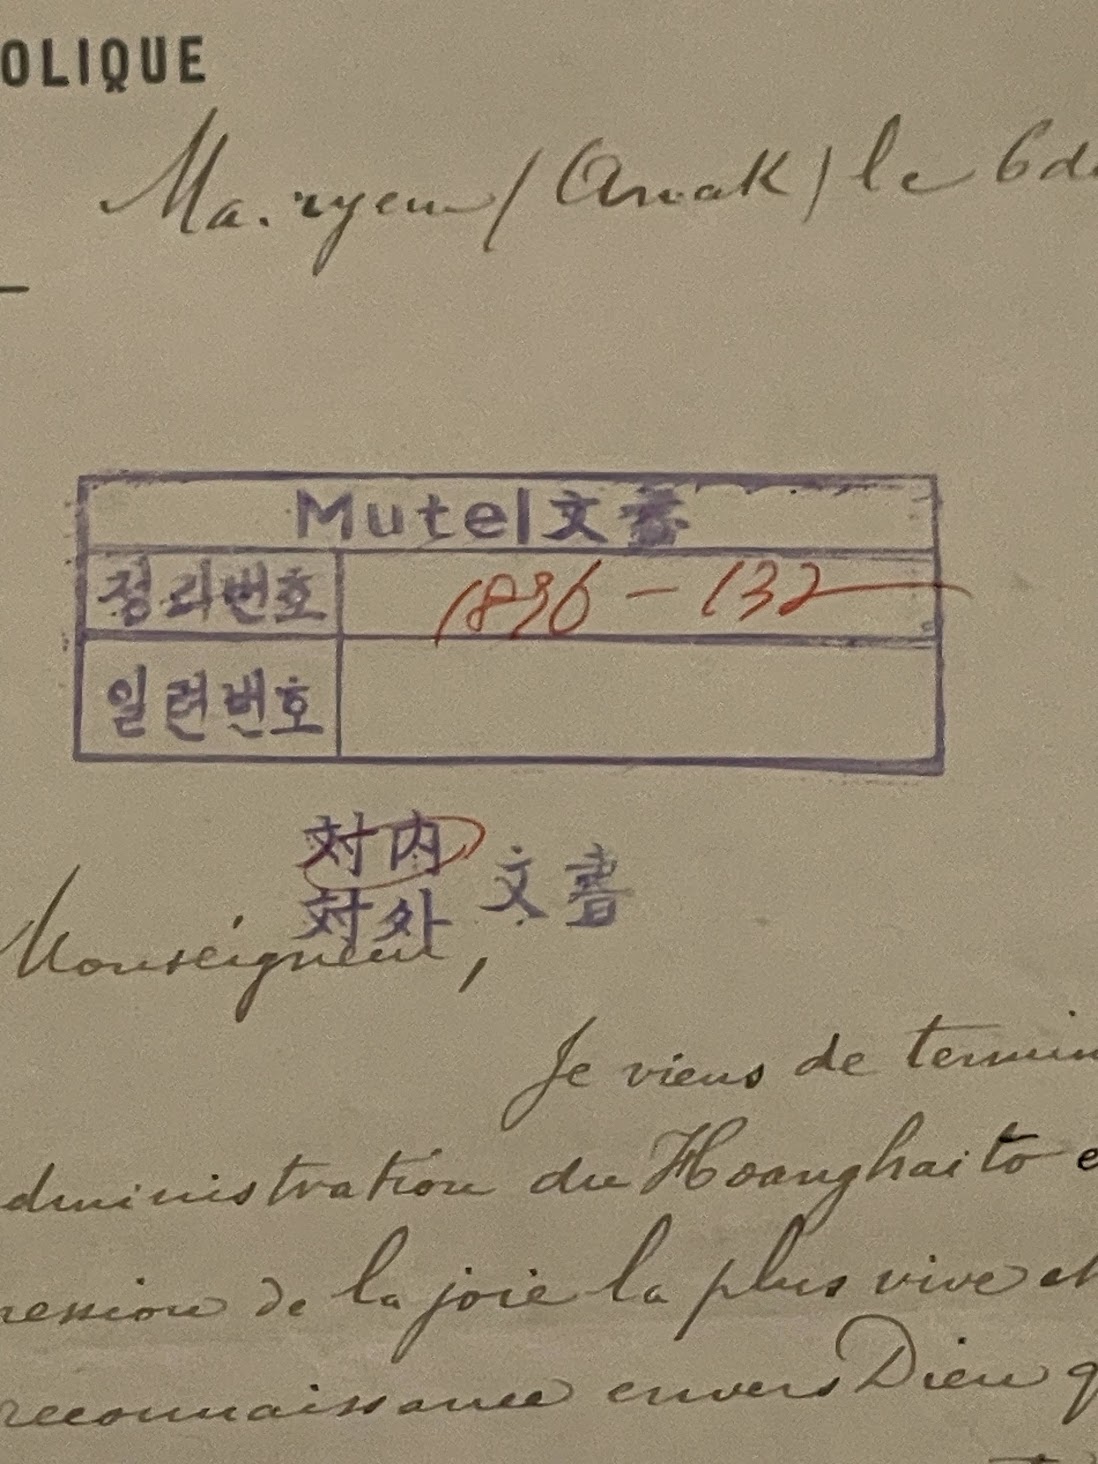 OLIQUE
Ma.ryem (Anak) le 6 de
Mutel文書
정리번호 1896-132
일련번호
対内
対外 文書
Monseigneur,
Je viens de termin
dministration du Hoanghaito e
ression de la joie la plus vive et
reconnaissance envers Dieu q